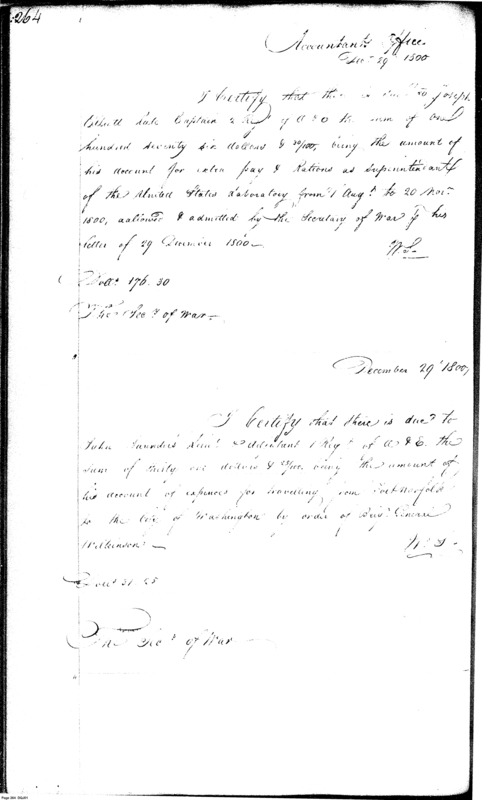 264
Accountants Office
Dec.r 29th 1800
I Certify that there is due to Joseph
Elliott late Captain 2 Reg.t of A & E the sum of One
hundred seventy six dollars & 30/100, being the amount of
his account for extra pay & Rations as Superintendant
of the United States Laboratory from 1 Aug.t to 20 Nov.r
1800, actioned & admitted by the Secretary of War p his
letter of 29 December 1800—
W.S—
Doll.s 176.30
The Sec.y of War—
December 29th 1800,
I Certify that there is due to
John Saunders Lieu.t & Adjutant 1 Reg.t of A & E. the
sum of thirty one dollars & 25/100. being the amount of
his account of expences for travelling from Fort Norfolk
to the City of Washington by order of Brig.r General
Wilkinson—
W.S—
Doll.s 31.25
The Sec.y of War